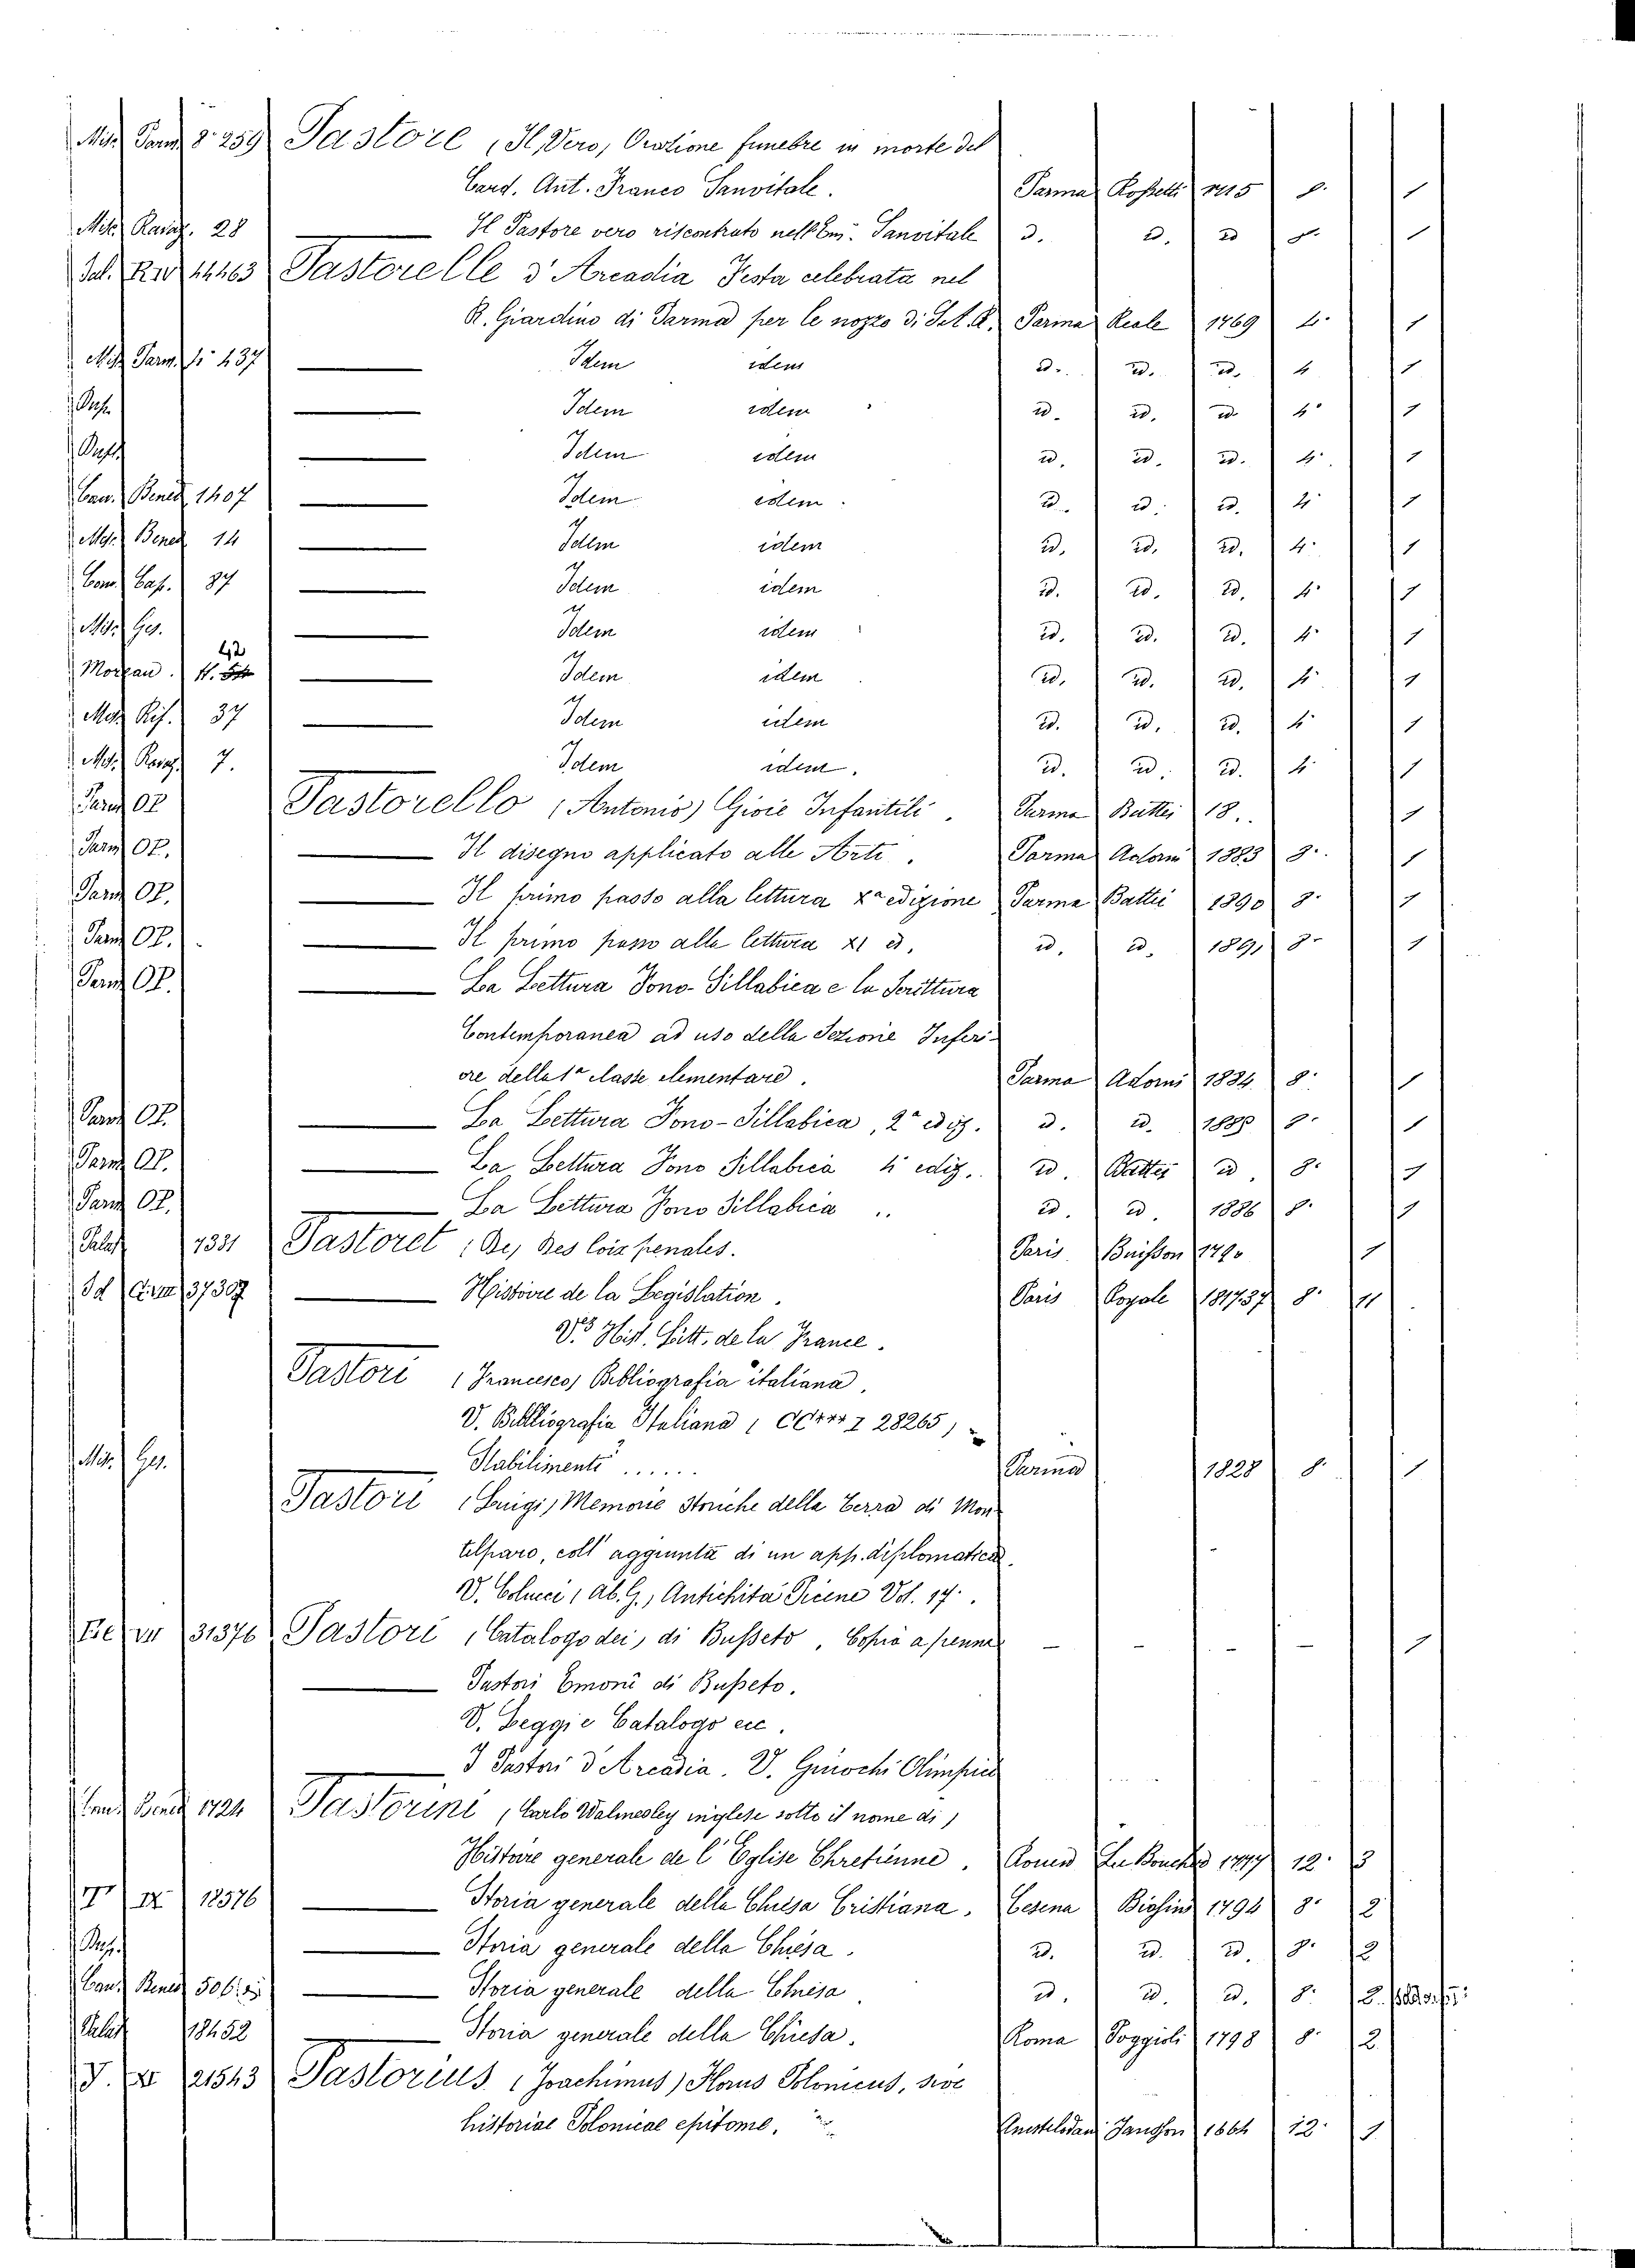 Misc. Parm. 8° 259 Pastore (Il Vero) Orazione funebre in morte del
Card. Ant. Franco Sanvitale. Parma Rossetti 1715 8. 1
Misc. 28 Il Pastore vero riscontrato nell'Em. Sanvitale id. id. id 1
Pal. 11463 Pastorelle d'Arcadia Festa celebrata nel
R. Giardino di Parma per le nozze di S. A. R. Parma Reale 1769 4° 1
Misc. Parm. 4° 437 —— Idem idem id. id. id. 4 1
—— Idem idem id. id. id 4° 1
—— Idem idem id. id. id. 4° 1
Cau. Bened. 1407 —— Idem idem. id. id. id. 4° 1
Misc. Bened. 14 —— Idem idem id. id. id. 4° 1
Com. Cass. 37 —— Idem idem id. id. id. 4° 1
Misc. Ges. —— Idem idem id. id. id. 4° 1
Moreau. 11. 42 —— Idem idem id. id. id. 4° 1
Misc. Rif. 37 —— Idem idem id. id. id. 4° 1
Misc. 7. —— Idem idem. id. id. id. 4° 1
Parm OP. Pastorello (Antonio) Gioie Infantili. Parma Battei 18.. 1
Parm OP. —— Il disegno applicato alle Arti. Parma Adorni 1883 8°. 1
Parm OP. —— Il primo passo alla lettura Xª edizione Parma Battei 1890 8° 1
Parm OP. —— Il primo passo alla lettura XI ed. id. id. 1891 8° 1
Parm OP. —— La Lettura Fono-Sillabica e la Scrittura
Contemporanea ad uso della Sezione Inferi-
ore della 1ª classe elementare. Parma Adorni 1884 8° 1
Parm OP. —— La Lettura Fono-Sillabica, 2ª ediz. id. id. 8° 1
Parm OP. —— La Lettura Fono Sillabica 4 ediz. id. Battei id. 8° 1
Parm OP. —— La Lettura Fono Sillabica .. id. id. 1886 8° 1
Palat. 7331 Pastoret (De) Des loix penales. Paris Buisson 1790 1
Id 37307 —— Histoire de la Legislation. Paris Royale 1817.37 8° 11
V. Hist. Litt. de la France.
Pastori (Francesco) Bibliografia italiana.
V. Bibliografia Italiana ( 28265)
Misc. Ges. Stabilimenti ...... Parma 1828 8° 1
Pastori (Luigi) Memorie storiche della Terra di Mon-
telparo, coll'aggiunta di un app. diplomatica.
V. Colucci (Ab. G.) Antichità Picene Vol. 17.
31376 Pastori (Catalogo dei) di Busseto. Copia a penna - - - - 1
—— Pastori Emonii di Busseto.
V. Leggi e Catalogo ecc.
—— I Pastori d'Arcadia. V. Giuochi Olimpici
Cau. Bened. 1724 Pastorini (Carlo Walmesley inglese sotto il nome di)
Histoire generale de l'Eglise Chretienne. Rouen Le Boucher 1777 12° 3
12576 —— Storia generale della Chiesa Cristiana. Cesena Biasini 1794 8° 2
—— Storia generale della Chiesa. id. id. id. 8° 2
Cau. Bened. 506 —— Storia generale della Chiesa id. id. id. 8° 2.
Palat. 18452 —— Storia generale della Chiesa. Roma Poggioli 1798 8° 2
21543 Pastorius (Joachimus) Florus Polonicus, sive
historiae Polonicae epitome. Amstelodami Jansson 1664 12° 1